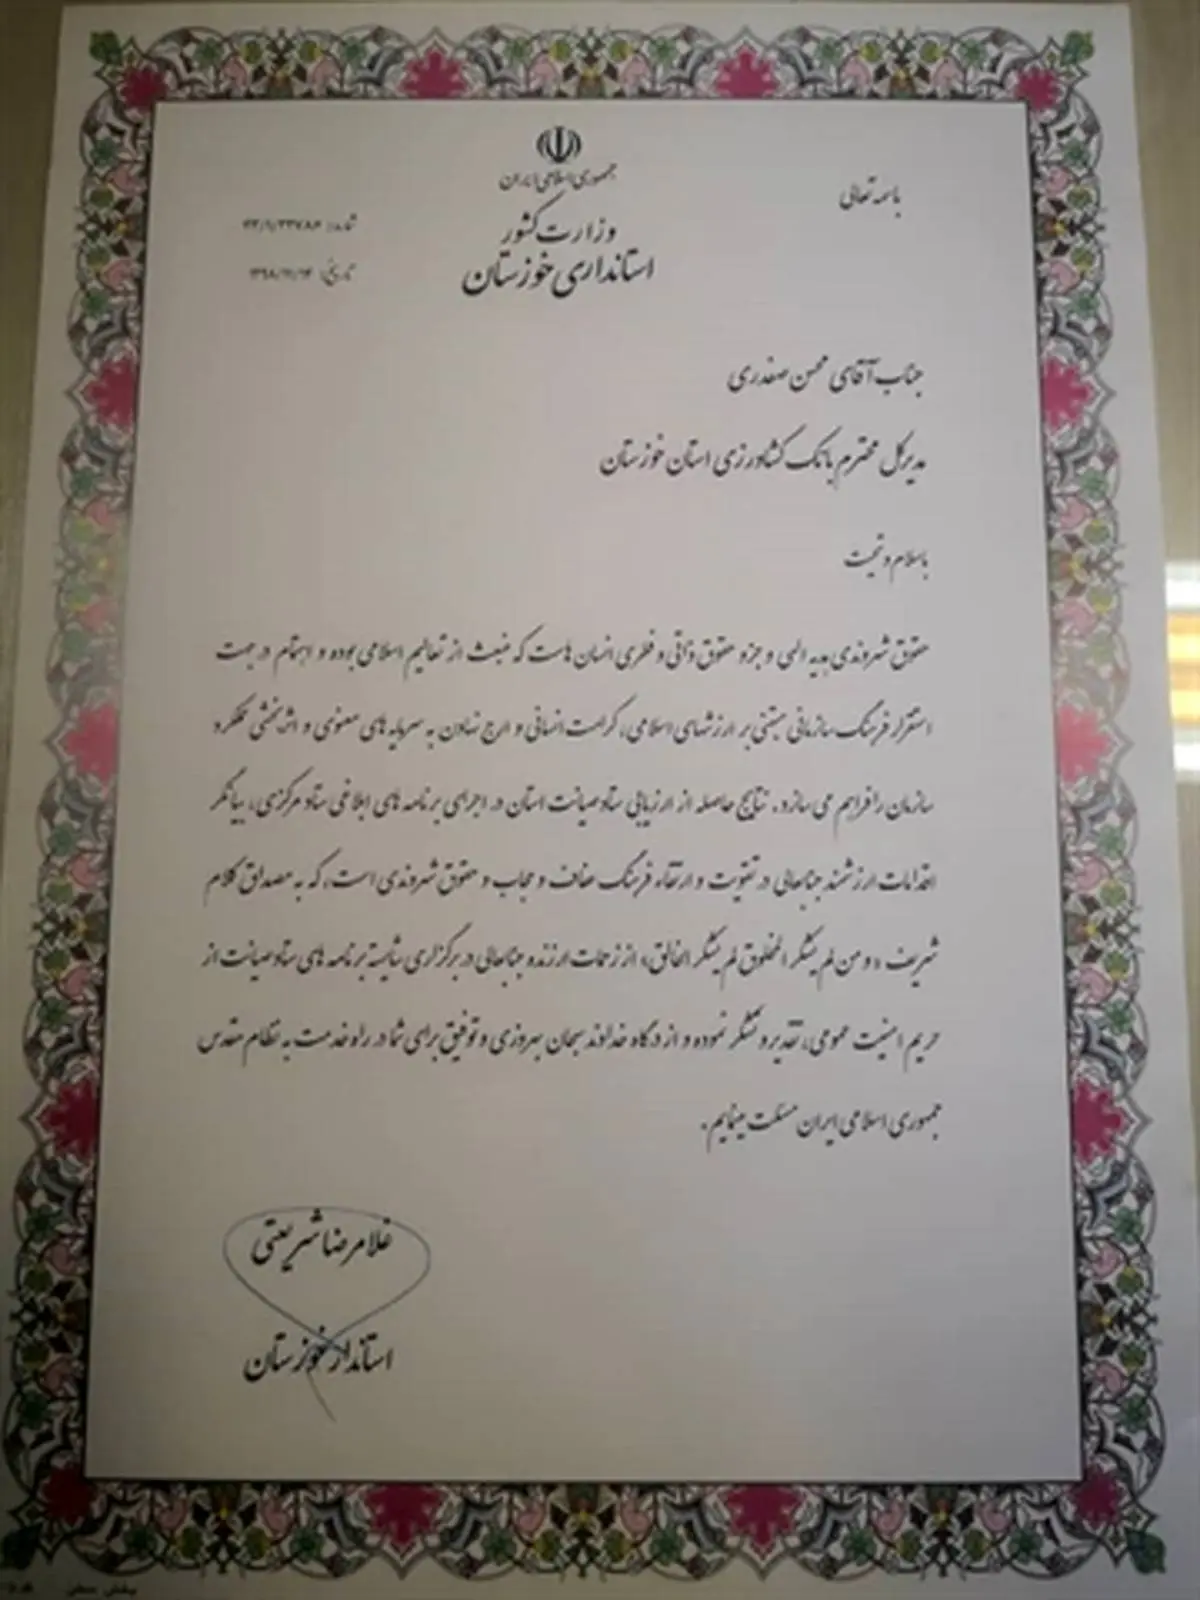 باسمه تعالی
جمهوری اسلامی ایران
وزارت کشور
استانداری خوزستان
شماره:
تاریخ:
جناب آقای محسن صفدری
مدیرکل محترم بانک کشاورزی استان خوزستان
باسلام و تحیت
حقوق شهروندی هدیه الهی و جزء حقوق ذاتی و فطری انسان هاست که منبعث از تعالیم اسلامی بوده و اهتمام در جهت
استقرار فرهنگ سازمانی مبتنی بر ارزشهای اسلامی، کرامت انسانی و ارج نهادن به سرمایه های معنوی و اثربخشی عملکرد
سازمان را فراهم می سازد. نتایج حاصله از ارزیابی ستاد صیانت استان در اجرای برنامه های ابلاغی ستاد مرکزی، بیانگر
اقدامات ارزشمند جنابعالی در تقویت و ارتقاء فرهنگ عفاف و حجاب و حقوق شهروندی است، که به مصداق کلام
شریف «و من لم یشکر المخلوق لم یشکر الخالق» از زحمات ارزنده جنابعالی در برگزاری شایسته برنامه های ستاد صیانت از
حریم امنیت عمومی، تقدیر و تشکر نموده و از درگاه خداوند سبحان بهروزی و توفیق برای شما در راه خدمت به نظام مقدس
جمهوری اسلامی ایران مسئلت مینمایم.
غلامرضا شریعتی
استاندار خوزستان